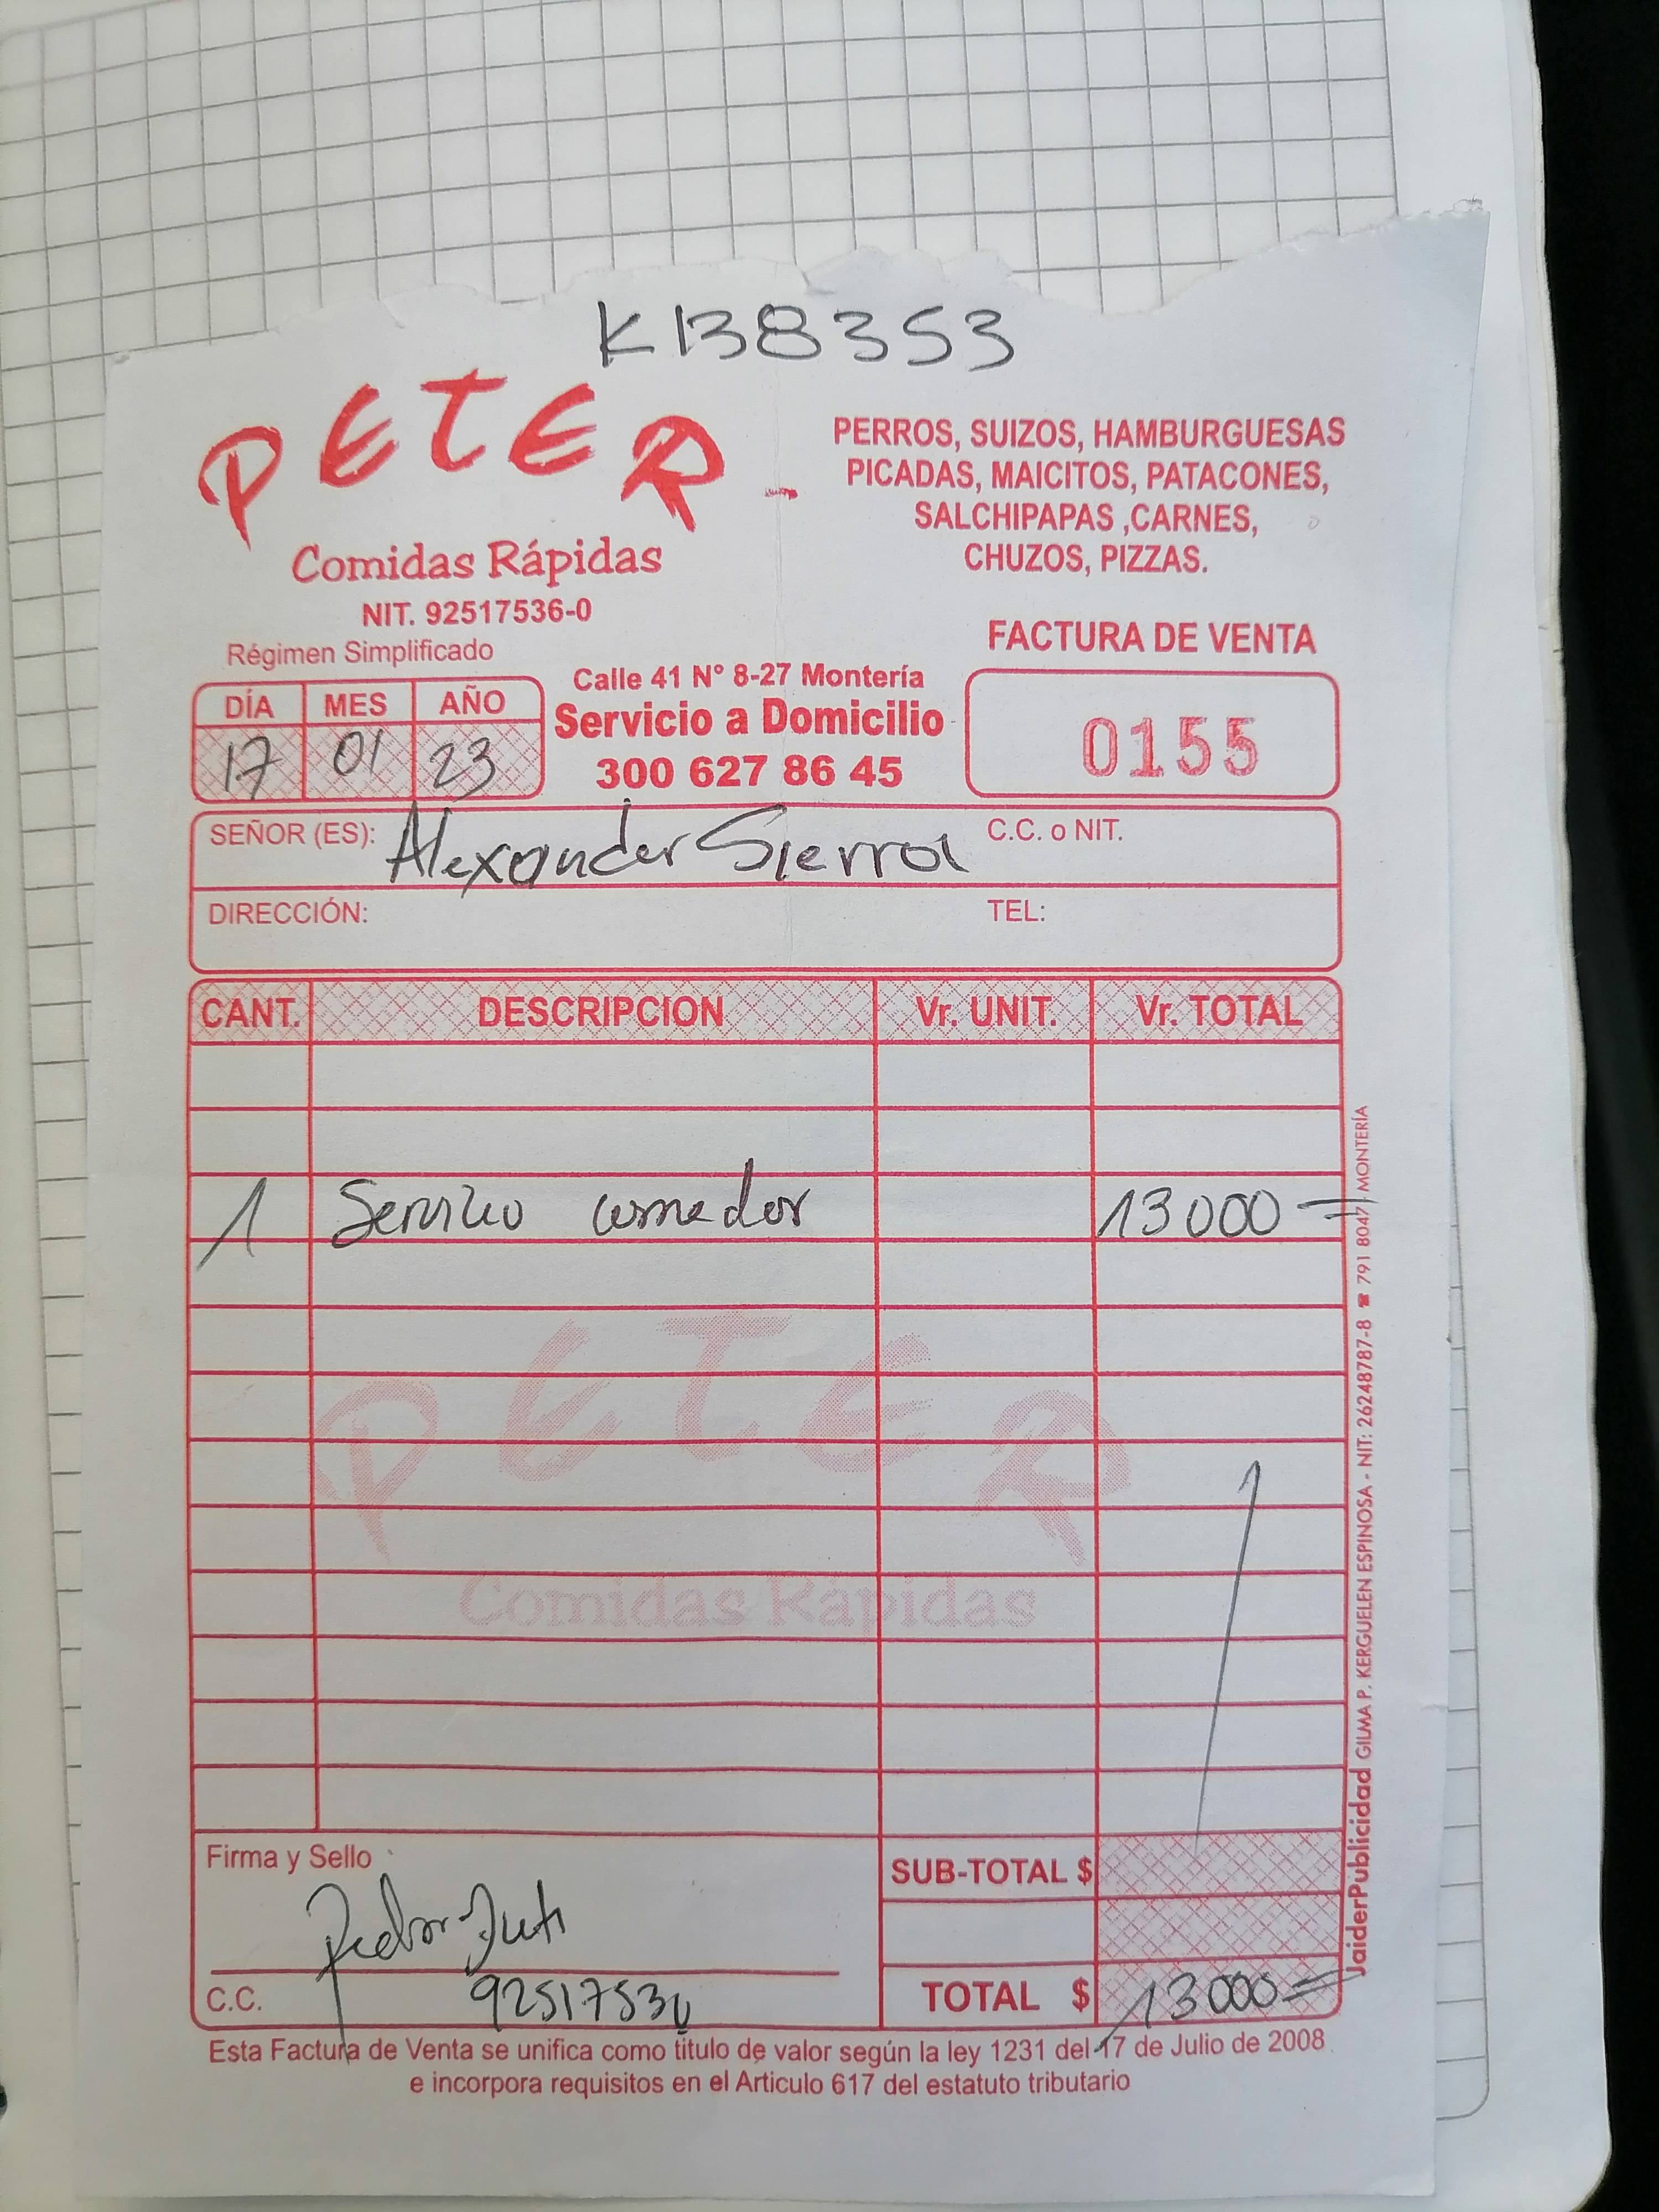 K138353
PETER
Comidas Rápidas
NIT. 92517536-0
Régimen Simplificado
PERROS, SUIZOS, HAMBURGUESAS
PICADAS, MAICITOS, PATACONES,
SALCHIPAPAS ,CARNES,
CHUZOS, PIZZAS.
FACTURA DE VENTA
0155
Calle 41 Nº 8-27 Montería
Servicio a Domicilio
300 627 86 45
DÍA MES AÑO
17 01 23
SEÑOR (ES): Alexander Sierra C.C. o NIT.
DIRECCIÓN: TEL:
CANT. DESCRIPCION Vr. UNIT. Vr. TOTAL
1 Servicio comedor 13000=
PETER
Comidas Rápidas
Firma y Sello
SUB-TOTAL $
C.C.
TOTAL $ 13000=
Esta Factura de Venta se unifica como titulo de valor según la ley 1231 del 17 de Julio de 2008
e incorpora requisitos en el Articulo 617 del estatuto tributario
JaiderPublicidad GILMA P. KERGUELEN ESPINOSA - NIT: 26248787-8 ☎ 791 8047 MONTERÍA